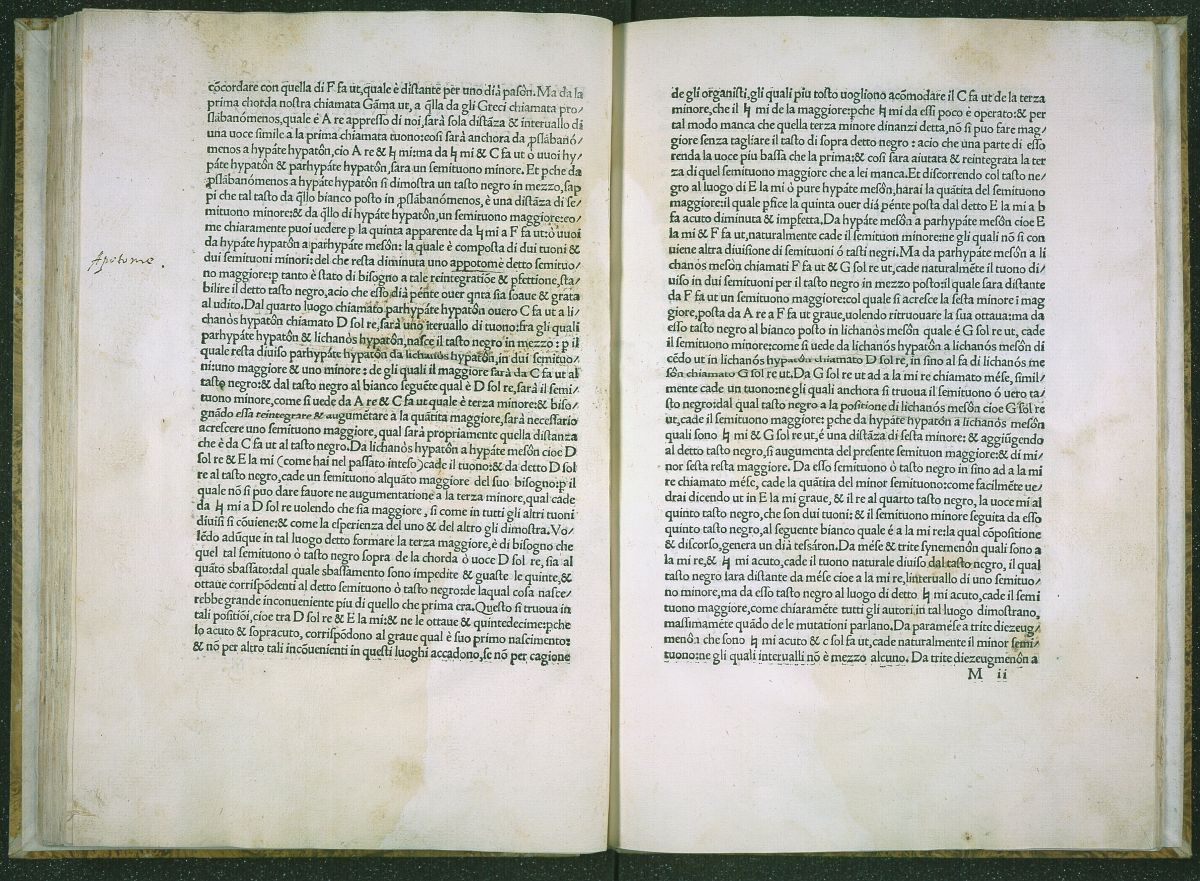 cõcordare con quella di F fa ut, quale è distante per uno dià pasòn. Ma da la
prima chorda nostra chiamata Gãma ut, a q̃lla da gli Greci chiamata pro/
slábanómenos, quale é A re appresso di noi, sarà sola distãza & interuallo di
una uoce simile a la prima chiamata tuono: cosi sarà anchora da ꝓslãbanó/
menos a hypáte hypatôn, cio A re & ♮ mi: ma da ♮ mi & C fa ut ò uuoi hy/
páte hypatôn & parhypáte hypatôn, sara un semituono minore. Et pche da
ꝓslãbanómenos a hypáte hypatôn si dimostra un tasto negro in mezzo, sap
pi che tal tasto da q̃llo bianco posto in ꝓslãbanómenos, è una distãza di se/
mituono minore: & da q̃llo di hypáte hypatôn, un semituono maggiore: co/
me chiaramente puoi uedere p la quinta apparente da ♮ mi a F fa ut: ò uuoi
da hypáte hypatôn a parhypáte mesôn: la quale è composta di dui tuoni &
dui semituoni minori: del che resta diminuta uno appotomè detto semituo/
Apotome.
no maggiore: p tanto è stato di bisogno a tale reintegratiõe & pfettione, sta/
bilire il detto tasto negro, acio che esso dià pénte ouer qnta sia soaue & grata
al udito. Dal quarto luogo chiamato parhypáte hypatôn ouero C fa ut a li/
chanòs hypatôn chiamato D sol re, sarà uno ĩteruallo di tuono: fra gli quali
parhypáte hypatôn & lichanòs hypatôn, nasce il tasto negro in mezzo: p il
quale resta diuiso parhypáte hypatôn da lichanòs hypatôn, in dui semituo/
ni: uno maggiore & uno minore: de gli quali il maggiore sarà da C fa ut al
tasto negro: & dal tasto negro al bianco seguẽte qual è D sol re, sarà il semi/
tuono minore, come si uede da A re & C fa ut quale è terza minore: & biso/
gnãdo essa reintegrare & augumẽtare à la quãtita maggiore, sarà necessario
acrescere uno semituono maggiore, qual sarà propriamente quella distanza
che è da C fa ut al tasto negro. Da lichanòs hypatôn a hypáte mesôn cioe D
sol re & E la mi (come hai nel passato inteso) cade il tuono: & da detto D sol
re al tasto negro, cade un semituono alquãto maggiore del suo bisogno: p il
quale nõ si puo dare fauore ne augumentatione a la terza minore, qual cade
da ♮ mi a D sol re uolendo che sia maggiore, si come in tutti gli altri tuoni
diuisi si cõuiene: & come la esperienza del uno & del altro gli dimostra. Vo/
lẽdo adũque in tal luogo detto formare la terza maggiore, è di bisogno che
quel tal semituono ò tasto negro sopra de la chorda ò uoce D sol re, sia al
quãto sbassato: dal quale sbassamento sono impedite & guaste le quinte, &
ottaue corrispõdenti al detto semituono ò tasto negro: de laqual cosa nasce/
rebbe grande inconueniente piu di quello che prima era. Questo si truoua in
tali positiõi, cioe tra D sol re & E la mi: & ne le ottaue & quintedecime: pche
lo acuto & sopracuto, corrispõdono al graue qual è suo primo nascimento:
& nõ per altro tali incõuenienti in questi luoghi accadono, se nõ per cagione
de gli organisti, gli quali piu tosto uogliono acõmodare il C fa ut de la terza
minore, che il ♮ mi de la maggiore: pche ♮ mi da essi poco è operato: & per
tal modo manca che quella terza minore dinanzi detta, nõ si puo fare mag/
giore senza tagliare il tasto di sopra detto negro: acio che una parte di esso
renda la uoce piu bassa che la prima: & cosi sara aiutata & reintegrata la ter
za di quel semituono maggiore che a lei manca. Et discorrendo col tasto ne/
gro al luogo di E la mi ò pure hypáte mesôn, harai la quãtita del semituono
maggiore: il quale pfice la quinta ouer diá pénte posta dal detto E la mi a b
fa acuto diminuta & impfetta. Da hypáte mesôn a parhypáte mesôn cioe E
la mi & F fa ut, naturalmente cade il semituon minore: ne gli quali nõ si con
uiene altra diuisione di semituoni ò tasti negri. Ma da parhypáte mesôn a li
chanòs mesôn chiamati F fa ut & G sol re ut, cade naturalmẽte il tuono di/
uiso in dui semituoni per il tasto negro in mezzo posto: il quale sara distante
da F fa ut un semituono maggiore: col quale si acresce la sesta minore ĩ mag
giore, posta da A re a F fa ut graue, uolendo ritruouare la sua ottaua: ma da
esso tasto negro al bianco posto in lichanòs mesôn quale é G sol re ut, cade
il semituono minore: come si uede da lichanòs hypatôn a lichanòs mesôn di
cẽdo ut in lichanòs hypatôn chiamato D sol re, in sino al fa di lichanòs me
sôn chiamato G sol re ut. Da G sol re ut ad a la mi re chiamato mése, simil/
mente cade un tuono: ne gli quali anchora si truoua il semituono ó uero ta/
sto negro: dal qual tasto negro a la positione di lichanòs mesôn cioe G sol re
ut, cade il semituono maggiore: pche da hypáte hypatôn a lichanòs mesôn
quali sono ♮ mi & G sol re ut, é una distãza di sesta minore: & aggiũgendo
al detto tasto negro, si augumenta del presente semituon maggiore: & di mi/
nor sesta resta maggiore. Da esso semituono ò tasto negro in sino ad a la mi
re chiamato mése, cade la quãtita del minor semituono: come facilmẽte ue/
drai dicendo ut in E la mi graue, & il re al quarto tasto negro, la uoce mi al
quinto tasto negro, che son dui tuoni: & il semituono minore seguita da esso
quinto tasto negro, al seguente bianco quale é a la mi re: la qual cõpositione
& discorso, genera un dià tessáron. Da mése & trite synemenôn quali sono a
la mi re, & ♮ mi acuto, cade il tuono naturale diuiso dal tasto negro, il qual
tasto negro sara distante da mése cioe a la mi re, linteruallo di uno semituo/
no minore, ma da esso tasto negro al luogo di detto ♮ mi acuto, cade il semi
tuono maggiore, come chiaramẽte tutti gli autori in tal luogo dimostrano,
massimamẽte quãdo de le mutationi parlano. Da paramése a trite diezeug/
menôn che sono ♮ mi acuto & c sol fa ut, cade naturalmente il minor semi/
tuono: ne gli quali interualli nõ è mezzo alcuno. Da trite diezeugmenôn a
M ii